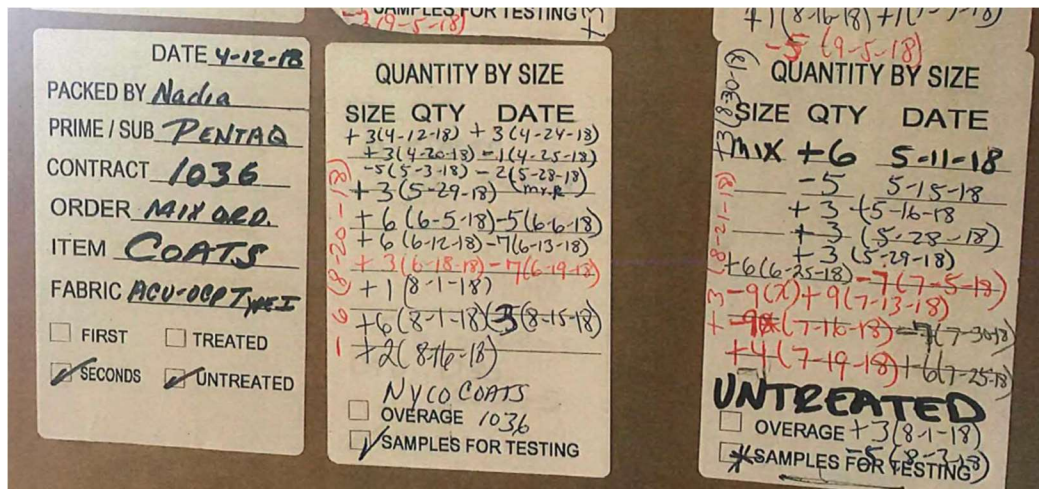 SAMPLES FOR TESTING
-3 (9-5-18)
+1(8-16-18) +1(
-5 (9-5-18)
DATE 4-12-18
PACKED BY Nadia
PRIME / SUB PENTAQ
CONTRACT 1036
ORDER MIX ORD.
ITEM COATS
FABRIC ACU-OCP TYPE I
FIRST TREATED
SECONDS UNTREATED
QUANTITY BY SIZE
SIZE QTY DATE
+3(4-12-18) +3(4-24-18)
+3(4-20-18) -1(4-25-18)
-5(5-3-18) -2(5-28-18)
+3(5-29-18) (mr.R)
+6(6-5-18) -5(6-6-18)
+6(6-12-18) -7(6-13-18)
+3(6-18-18) -7(6-19-18)
+1(8-1-18)
+6(8-1-18) (8-15-18)
+2(8-16-18)
NYCO COATS
OVERAGE 1036
SAMPLES FOR TESTING
QUANTITY BY SIZE
SIZE QTY DATE
+3(8-30-18)
mix +6 5-11-18
-5 5-15-18
+3 (5-16-18
+3 (5-28-18)
+3 (5-29-18)
+6(6-25-18) -7(7-5-18)
-9(X)+9(7-13-18)
(7-16-18) -7(7-30-18)
+4(7-19-18) +6(7-25-18)
UNTREATED
OVERAGE +3(8-1-18)
SAMPLES FOR TESTING -5(8-3-18)